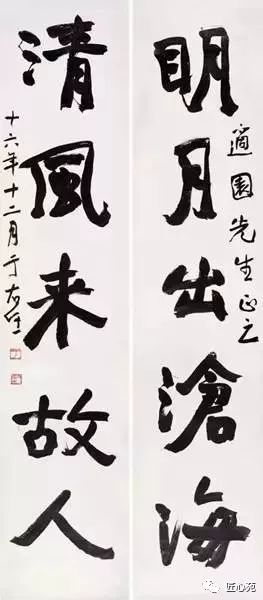 明月出滄海
適園先生正之
清風来故人
十六年十二月于右任
匠心苑